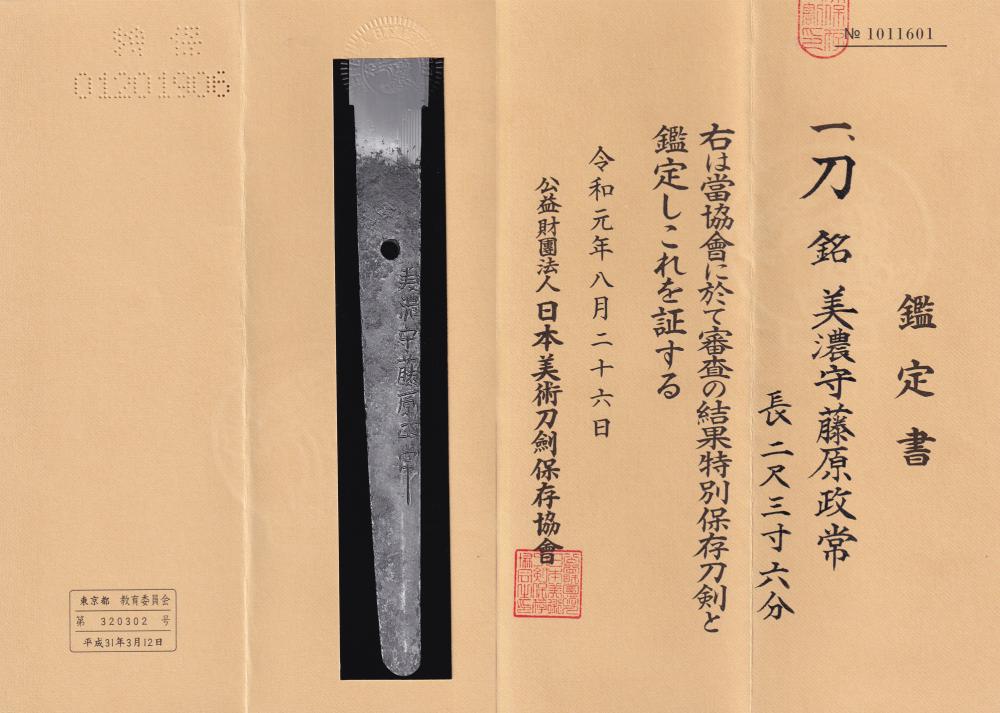 № 1011601
鑑定書
一、刀 銘 美濃守藤原政常
長 二尺三寸六分
右は當協會に於て審査の結果特別保存刀剣と
鑑定しこれを証する
令和元年八月二十六日
公益財團法人 日本美術刀劍保存協會
美濃守藤原政常
特保
01201906
東京都 教育委員会
第 320302 号
平成31年3月12日